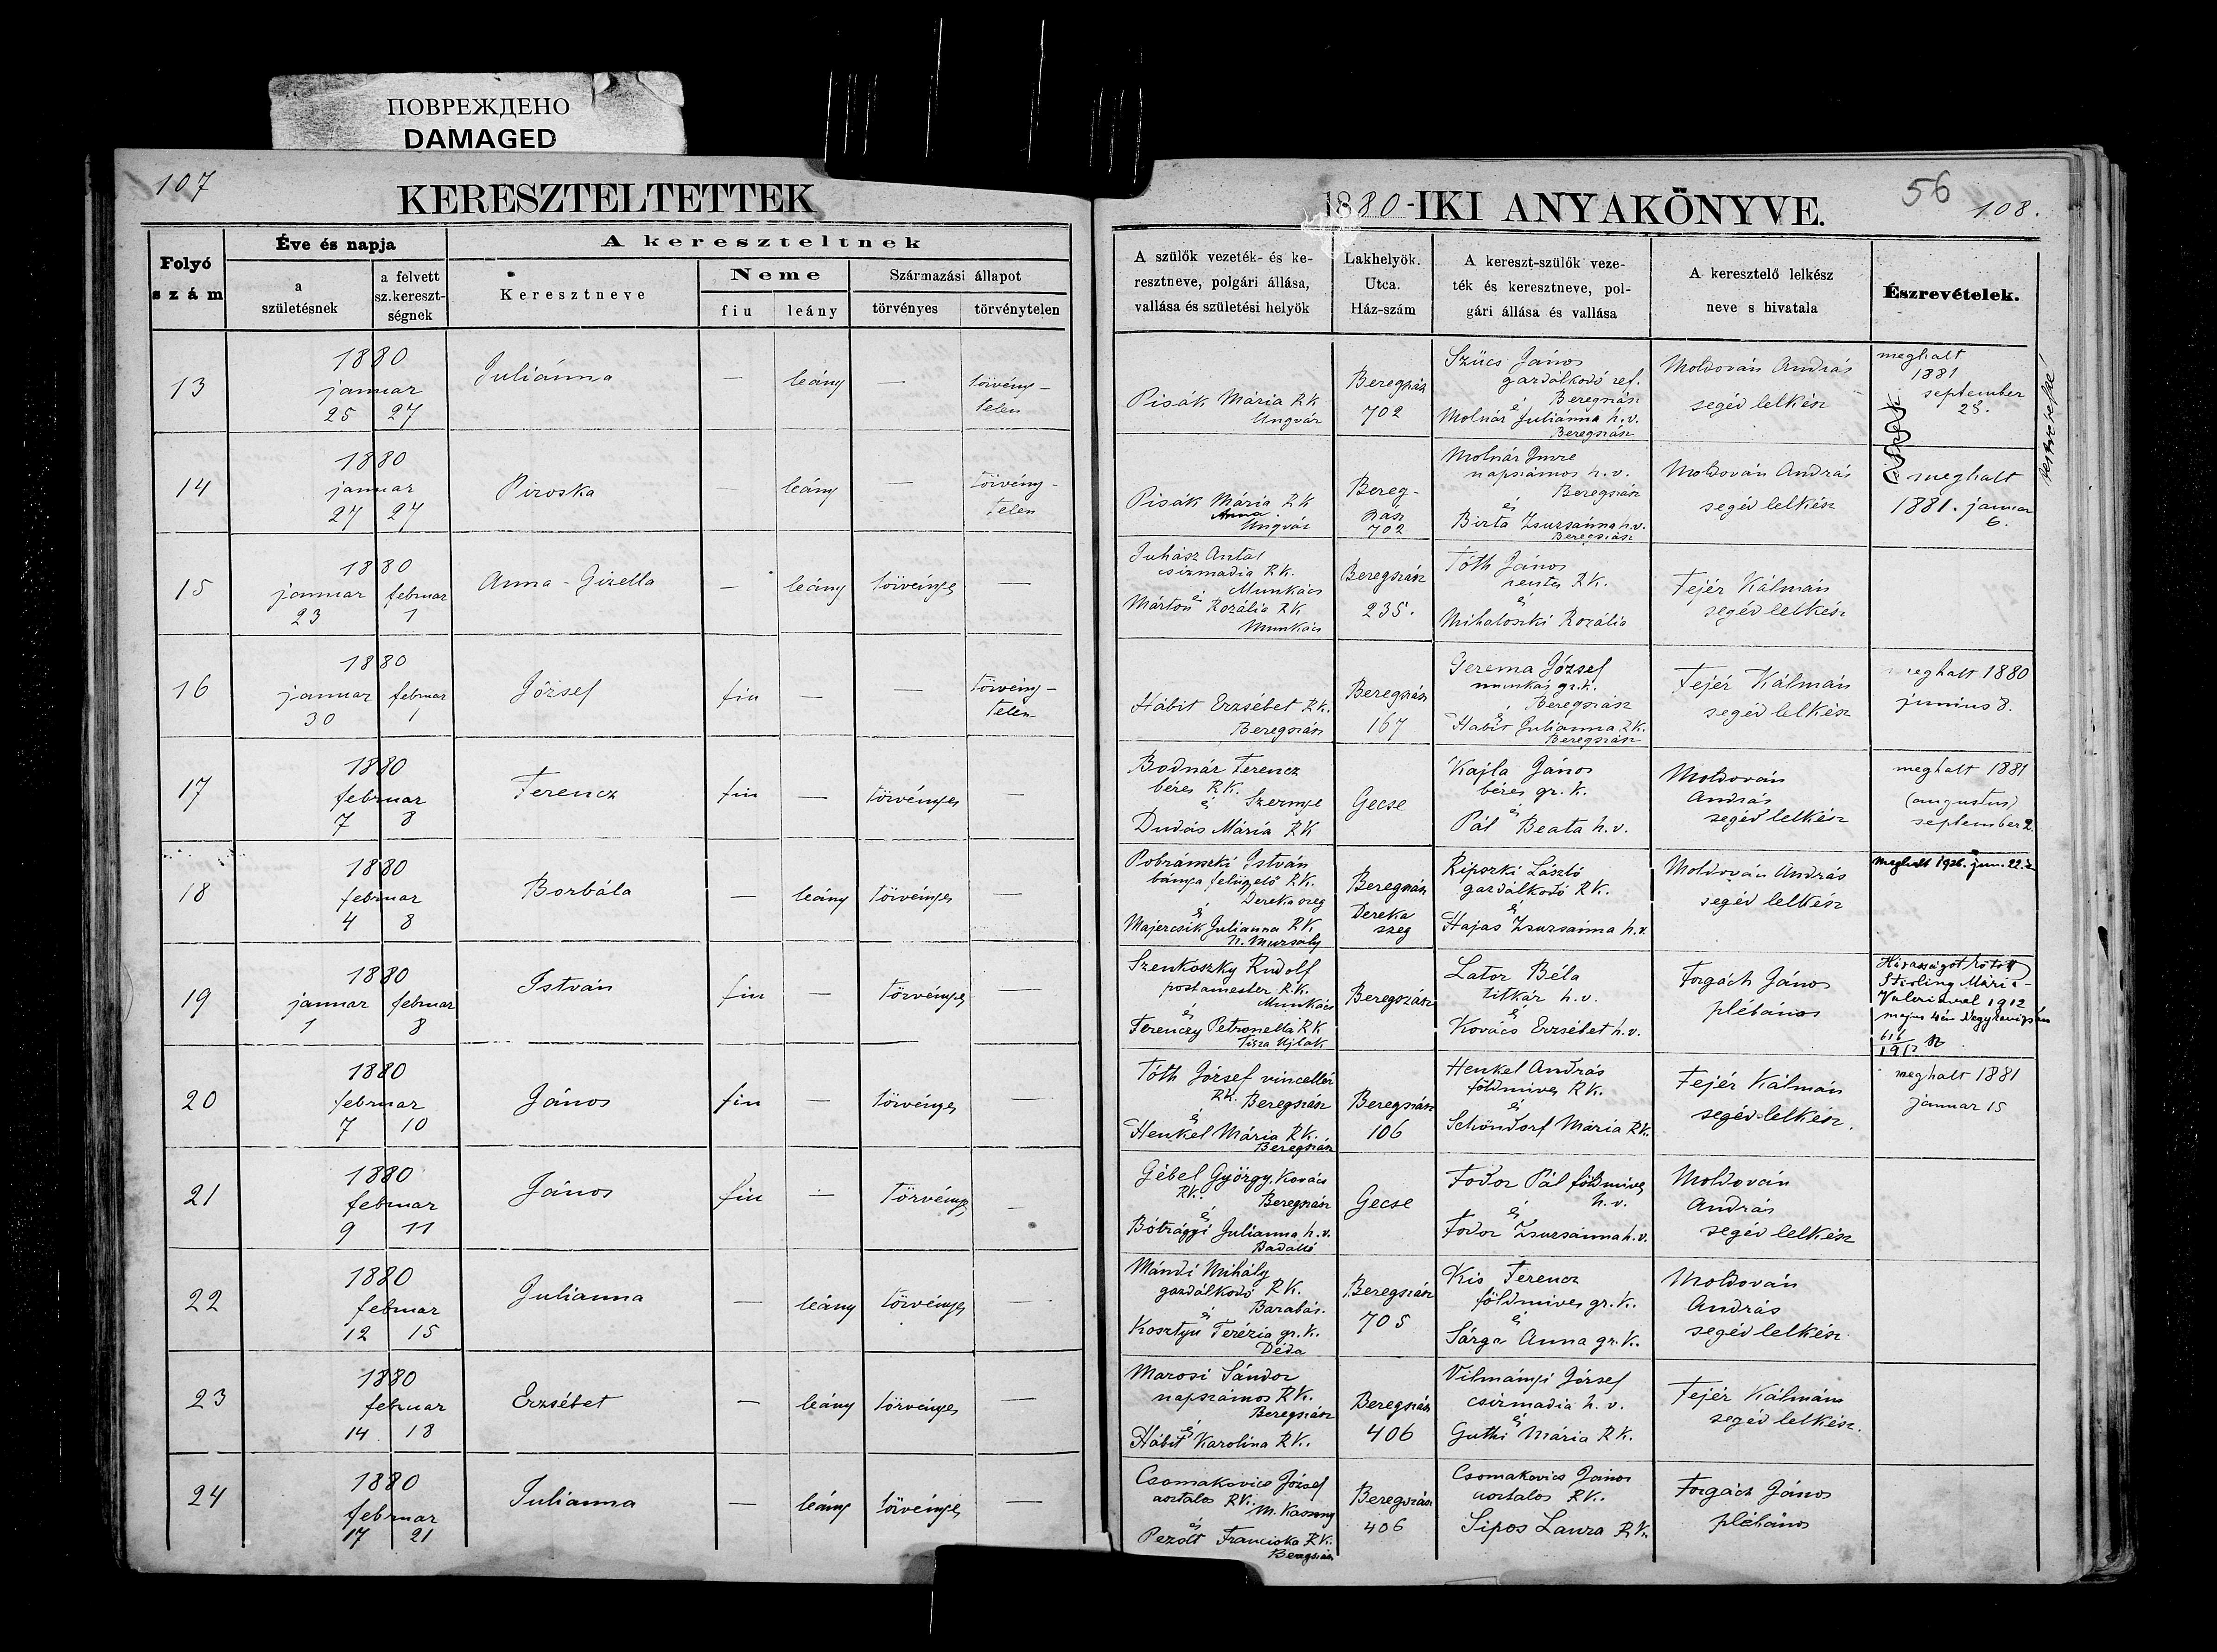 ПОВРЕЖДЕНО
DAMAGED
107
KERESZTELTETTEK
Folyó
szám
Éve és napja
a
születésnek
a felvett
sz.kereszt-
ségnek
A kereszteltnek
Keresztneve
Neme
fiu
leány
Származási állapot
törvényes
törvénytelen
13
1880
januar
25 27
Juliánna
—
leány
—
törvény-
telen
14
1880
januar
27 27
Piroska
—
leány
—
törvény-
telen
15
1880
januar februar
23 1
Anna-Gizella
—
leány
törvényes
—
16
1880
januar februar
30 1
József
fiu
—
—
törvény-
telen
17
1880
februar
7 8
Ferencz
fiu
—
törvényes
—
18
1880
februar
4 8
Borbála
—
leány
törvényes
—
19
1880
januar februar
1 8
István
fiu
—
törvényes
—
20
1880
februar
7 10
János
fiu
—
törvényes
—
21
1880
februar
9 11
János
fiu
—
törvényes
—
22
1880
februar
12 15
Julianna
—
leány
törvényes
—
23
1880
februar
14 18
Erzsébet
—
leány
törvényes
—
24
1880
februar
17 21
Julianna
—
leány
törvényes
—
1880-IKI ANYAKÖNYVE.
56
108.
A szülők vezeték- és ke-
resztneve, polgári állása,
vallása és születési helyök
Lakhelyök.
Utca.
Ház-szám
A kereszt-szülők veze-
ték és keresztneve, pol-
gári állása és vallása
A keresztelő lelkész
neve s hivatala
Észrevételek.
Pisák Mária RK
Ungvár
Beregszász
702
Szücs János
gazdálkodó ref.
Beregszász
é
Molnár Juliánna h.v.
Beregszász
Moldován András
segéd lelkész
meghalt
1881
september
28.
Pisák Mária RK
Anna
Ungvár
Bereg-
szász
702
Molnár Imre
napszámos h.v.
Beregszász
és
Birta Zsuzsánna h.v.
Beregszász
Moldován András
segéd lelkész
meghalt
1881. januar
6.
Juhász Antal
csizmadia RK.
Munkács
é
Márton Rozália RK
Munkács
Beregszász
235.
Tóth János
RK.
é
Mihaloszki Rozália
Fejér Kálmán
segéd lelkész
Hábit Erzsébet RK.
Beregszász
Beregszász
167
Gerema József
munkás gr.k.
Beregszász
é
Habit Julianna RK.
Beregszász
Fejér Kálmán
segéd lelkész
meghalt 1880
junius 8.
Bodnár Ferencz
béres RK.
é Szernye
Dudás Mária RK
Gecse
Kajla János
béres gr.k.
é
Pál Beata h.v.
Moldován
András
segéd lelkész
meghalt 1881
(augustus)
september 2.
Pobránszki István
bánya felügyelő RK.
Dereka szeg
é
Majercsik Julianna RK.
N. Muzsaly
Beregszász
Dereka
szeg
Ripszki László
gazdálkodó RK.
é
Hajas Zsuzsánna h.v.
Moldován András
segéd lelkész
Meghalt 1926. jun. 22.
Szenkoszky Rudolf
postamester R.K.
Munkács
és
Ferenczy Petronella RK
Tisza Ujlak
Beregszász
Lator Béla
titkár h.v.
é
Kovács Erzsébet h.v.
Forgách János
plébános
Házasságot kötött
Stirling Mária-
Valeriával 1912
május 4én
616
1912
Tóth József vincellér
RK. Beregszász
é
Henkel Mária RK.
Beregszász
Beregszász
106
Henkel András
földmives RK.
és
Schöndorf Mária RK.
Fejér Kálmán
segéd-lelkész.
meghalt 1881
januar 15
Gébel György, Kovács
RK. Beregszász
é
Bótrágyi Julianna h.v.
Badalló
Gecse
Fodor Pál földmives
h.v.
és
Fodor Zsuzsánna h.v.
Moldován
András
segéd lelkész
Mándi Mihály
gazdálkodó RK.
Barabás.
é
Kosztyu Terézia gr.k.
Déda
Beregszász
705
Kis Ferencz
földmives gr.k.
é
Sárga Anna gr.k.
Moldován
András
segéd lelkész.
Marosi Sándor
napszámos RK.
Beregszász
é
Hábit Karolina RK.
Beregszász
406
Vilmányi József
csizmadia h.v.
é
Guthi Mária RK.
Fejér Kálmán
segéd lelkész.
Csomakovics József
asztalos RK.
M. Kaszony
és
Pezolt Franciska RK.
Beregszász
Beregszász
406
Csomakovics János
asztalos RK.
Sipos Laura RK.
Forgách János
plébános